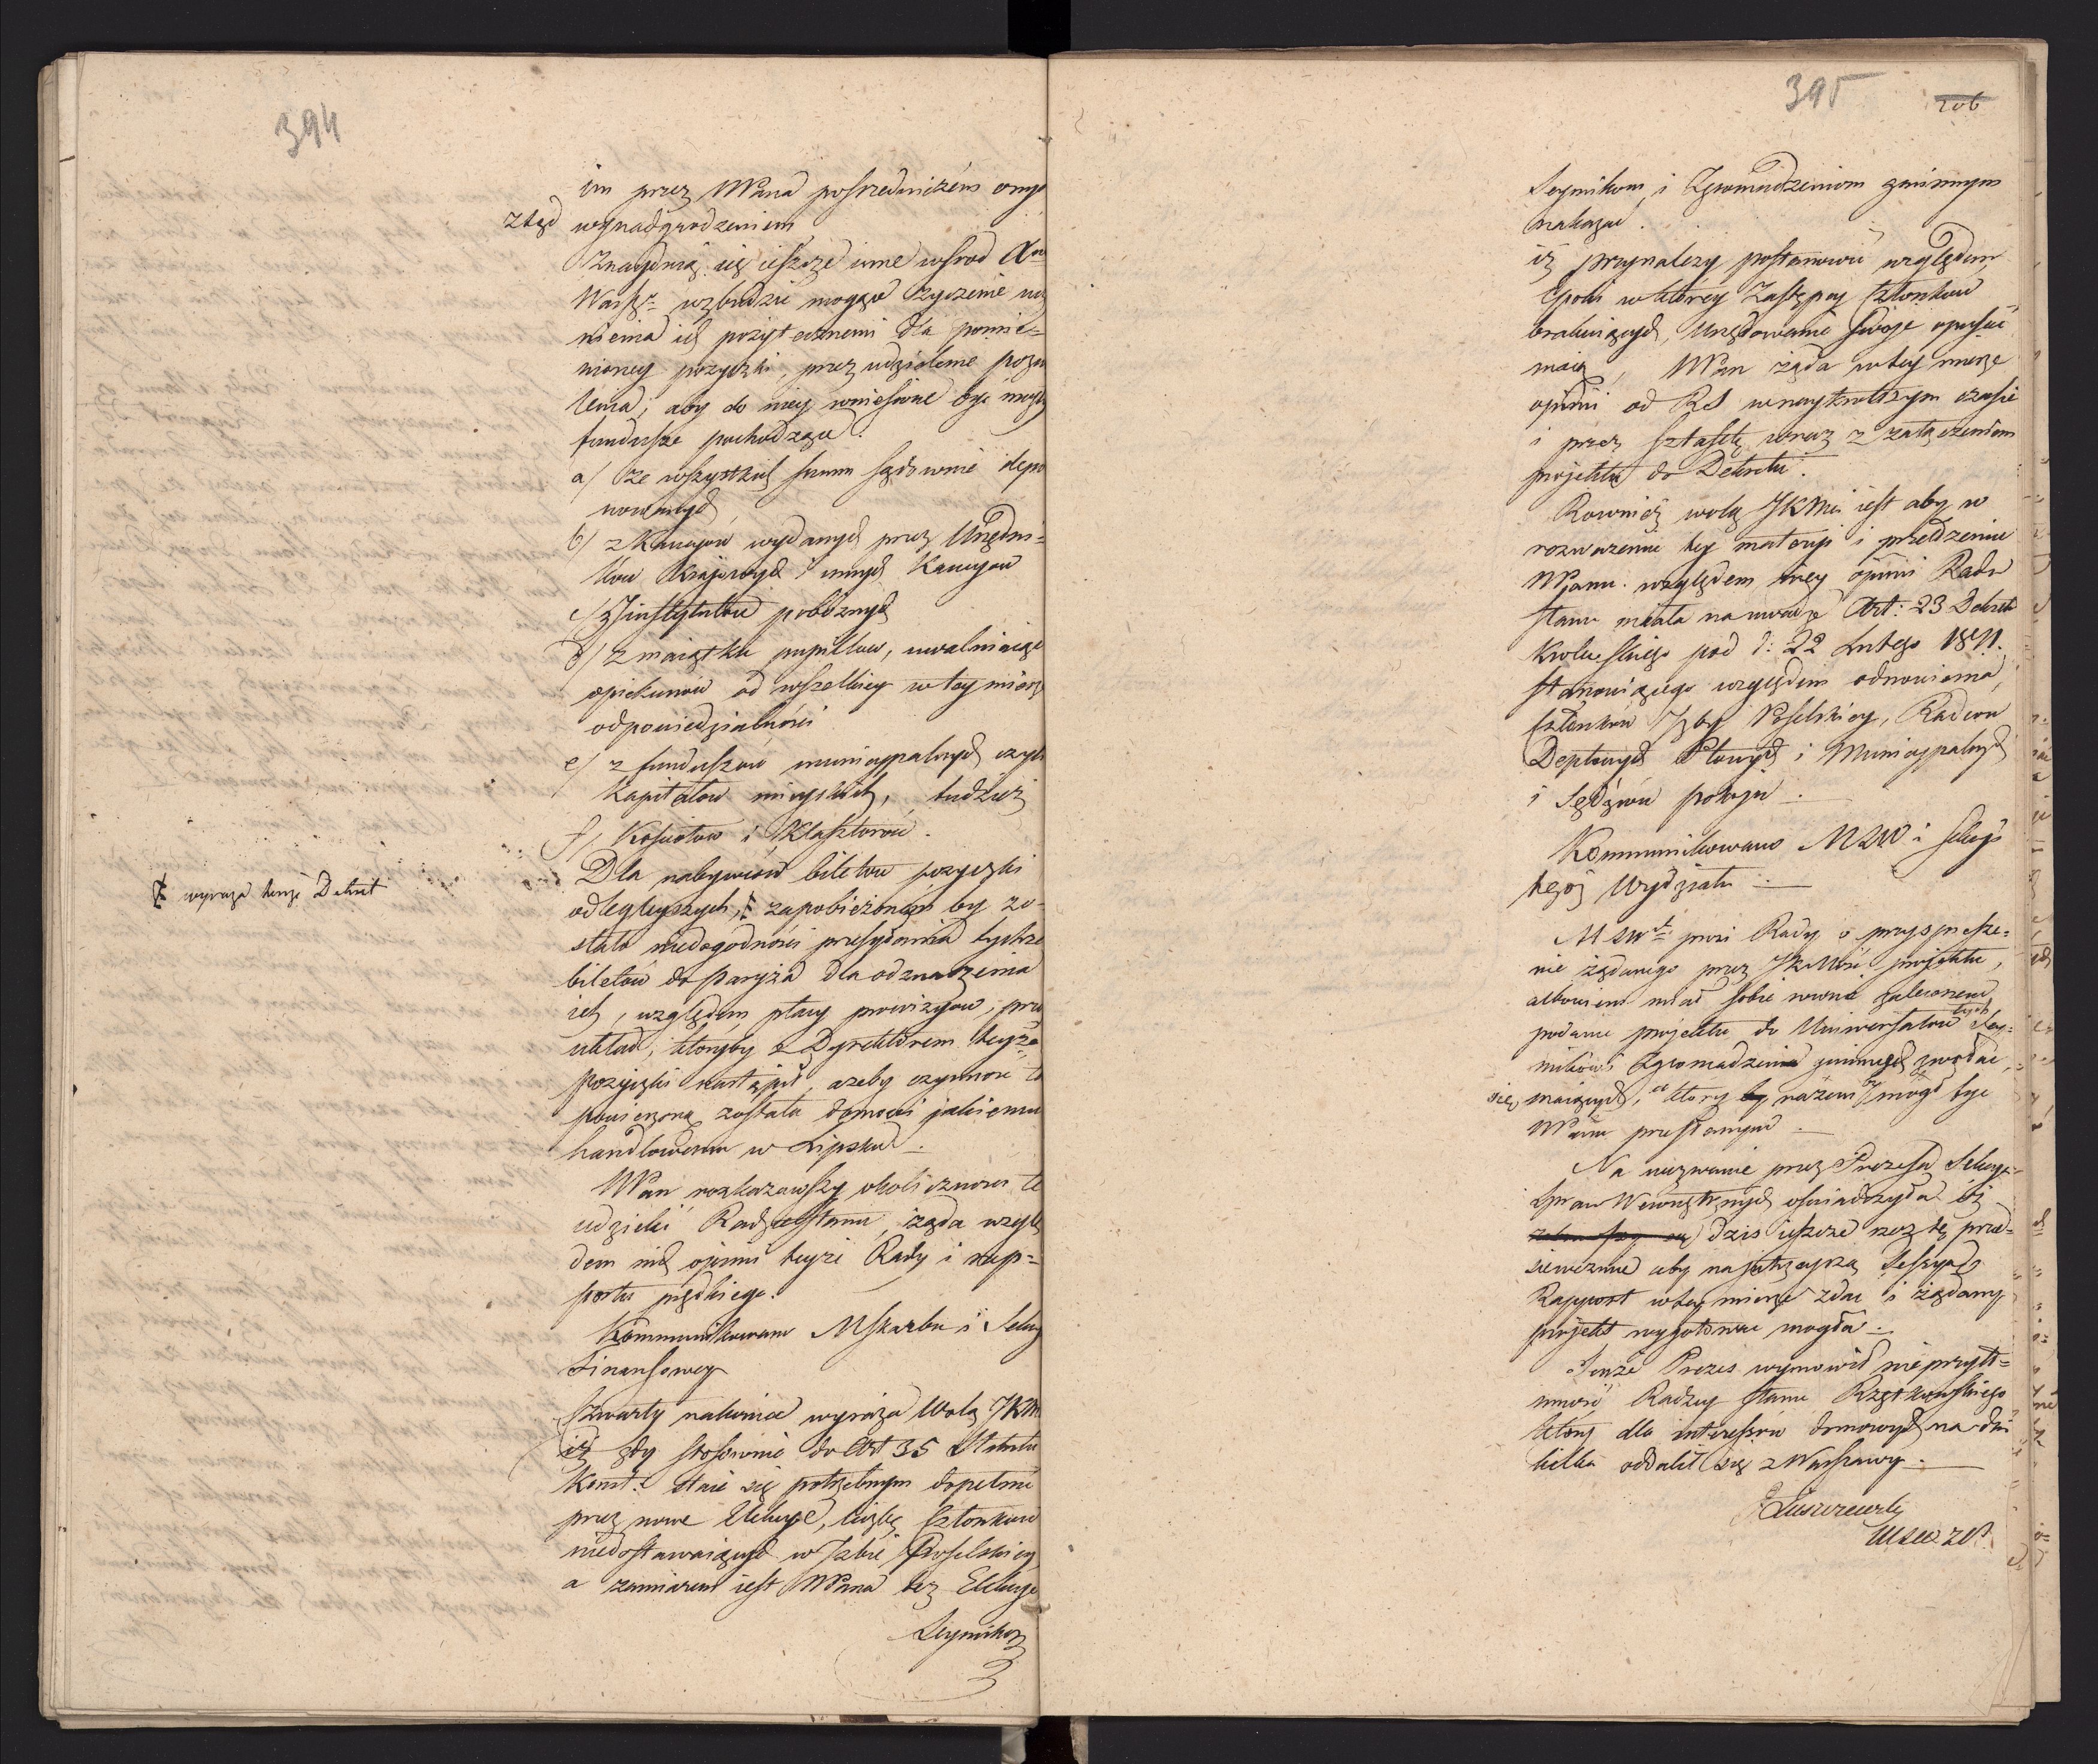 394
im przez MPana pośrednictwem onego
ztąd wynadgrodzeniem
Znayduią się ieszcze inne wśrod Xtwa
Warszgo wzbudzić mogące życzenie uczy
nienia ich pożytecznemi dla pomie=
nioney pożyczki, przez udzielenie pozwo
lenia, aby do niey wniesione być mogły
fundusze pochodzące.
a/ ze wszystkich summ sądownie depo
nowanych
b/ z Kaucyow wydanych przez Urzędni=
kow Kraiowych i innych Kaucyow
c/ z Instytutow pobożnych
d/ z maiątku pupillow, uwalniaiąc
opiekunow od wszelkiey w tey mierze
odpowiedzialności
e/ z funduszow municypalnych czyli
Kapitałow mieyskich, tudzież
f/ Kościołow i Klasztorow.
Dla nabywcow biletow pożyczki
odlegleyszych, zapobieżonem by zo-
stało niedogodności przesyłania tychże
biletow do Paryża dla odznaczenia
ich, względem płacy prowizyow, przez
układ, ktoryby z Dyrektorem teyże
pożyczki nastąpił, ażeby czynność ta
powierzoną została domowi jakiemu
handlowemu w Lipsku.
wyraża tenże Dekret
MPan rozkazawszy okoliczności te
udzielić Radzie Stanu, żąda wzglę
dem nich opinii teyże Rady i rap=
portu prędkiego.
Kommunikowano MSkarbu i Sekcyi
Finansowey
Czwarty nakoniec wyraża Wolą JKM
iż gdy stosownie do Art 35 Statutu
Konst: staie się potrzebnym dopełnić
przez nowe Elekcye, liczbę Członkow
niedostawaiących w Izbie Poselskiey
a zamiarem iest MPana tez Elekcye
Seymikom

395
206
Seymikom, i Zgromadzeniom gminnym
nakazać.
iż przynależy postanowić względem
Epoki w ktorey Zastępcy Członkow
brakuiących, Urzędowanie swoje opuścić
maią, MPan żąda w tey mierze
opinii od RS w naykrotszym czasie
i przez sztafetę wraz z załączeniem
projektu do Dekretu.
Rownież wolą JKMci iest aby w
rozważeniu tey materyi i przedłożeniu
MPanu względem niey opinii Rada
Stanu miała na uwadze Art: 23 Dekretu
Krolewskiego pod d: 22 Lutego 1811.
stanowiącego względem odnowienia
Członkow Izby Poselskiey, Radcow
Deptowych Ptowych i Municypalnych
i Sędziow pokoju.
Kommunikowano MSW i Sekcyi
tegoż Wydziału.
MSW prosi Rady o przyspiesze=
nie żądanego przez JKMść projektu,
albowiem miał sobie rownie zalecone
podanie projektu do Uniwersałow tych Sey=
mikow i Zgromadzenia gminnych zwołać
się maiących, ktory razem mogł być
MPanu przesłanym.
Na wezwanie przez Prezesa Sekcya
Spraw Wewnętrznych oświadczyła iż
dzis ieszcze rzecz tę przed=
sięweźmie aby na jutrzeyszą Sessyą
Rapport w tey mierze zdać i żądany
projekt wygotować mogła.
Tenże Prezes wymowił nieprzyto=
mność Radzcy Stanu Rzętkowskiego
ktory dla interessow domowych na dni
kilka oddalił się z Warszawy.
Łuszczewski